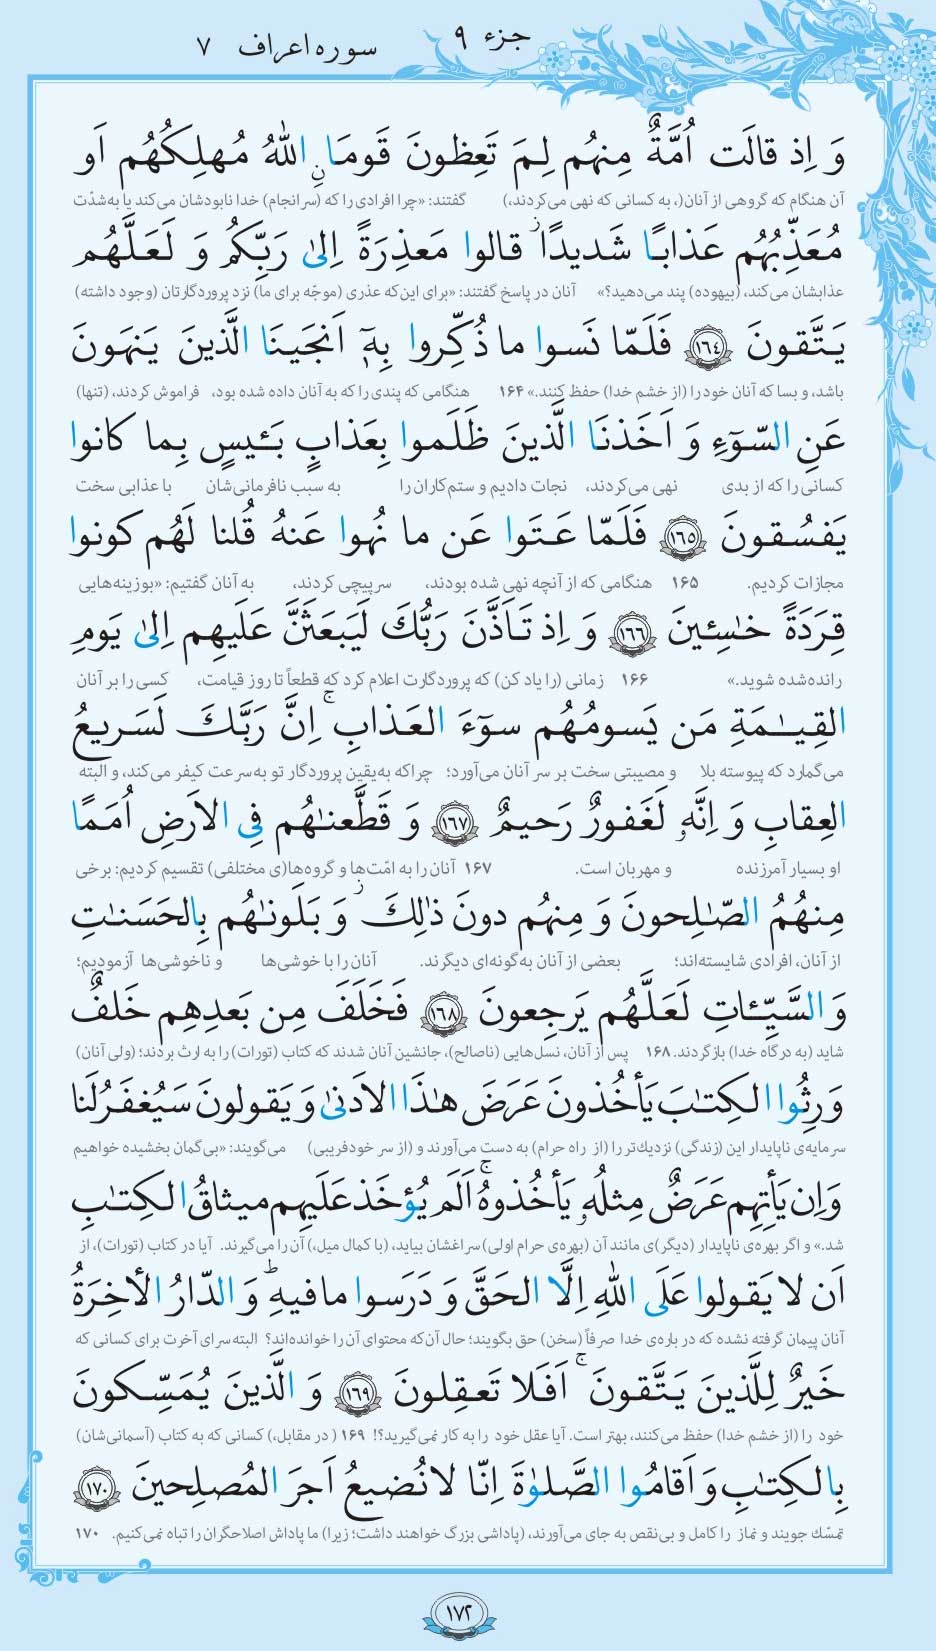 جزء ۹ سوره اعراف ۷
وَ اِذ قالَت اُمَّةٌ مِنهُم لِمَ تَعِظونَ قَومَانِ اللّٰهُ مُهلِكُهُم اَو
آن هنگام که گروهی از آنان (، به کسانی که نهی می‌کردند،) گفتند: «چرا افرادی را که (سرانجام) خدا نابودشان می‌کند یا به‌شدّت
مُعَذِّبُهُم عَذابًا شَديدًا ۖ قالوا مَعذِرَةً اِلىٰ رَبِّكُم وَ لَعَلَّهُم
عذابشان می‌کند، (بیهوده) پند می‌دهید؟» آنان در پاسخ گفتند: «برای این‌که عذری (موجّه برای ما) نزد پروردگارتان (وجود داشته)
يَتَّقونَ ﴿١٦٤﴾ فَلَمّا نَسوا ما ذُكِّروا بِهٖٓ اَنجَينَا الَّذينَ يَنهَونَ
باشد، و بسا که آنان خود را (از خشم خدا) حفظ کنند.» ۱۶۴ هنگامی که پندی را که به آنان داده شده بود، فراموش کردند، (تنها)
عَنِ السّوٓءِ وَ اَخَذنَا الَّذينَ ظَلَموا بِعَذابٍ بَـٔيسٍ بِما كانوا
کسانی را که از بدی نهی می‌کردند، نجات دادیم و ستم‌کاران را به سبب نافرمانی‌شان با عذابی سخت
يَفسُقونَ ﴿١٦٥﴾ فَلَمّا عَتَوا عَن ما نُهوا عَنهُ قُلنا لَهُم كونوا
مجازات کردیم. ۱۶۵ هنگامی که از آنچه نهی شده بودند، سرپیچی کردند، به آنان گفتیم: «بوزینه‌هایی
قِرَدَةً خٰسِـٔينَ ﴿١٦٦﴾ وَ اِذ تَاَذَّنَ رَبُّكَ لَيَبعَثَنَّ عَلَيهِم اِلىٰ يَومِ
رانده‌شده شوید.» ۱۶۶ زمانی (را یاد کن) که پروردگارت اعلام کرد که قطعاً تا روز قیامت، کسی را بر آنان
القِيٰمَةِ مَن يَسومُهُم سوٓءَ العَذابِ ۚ اِنَّ رَبَّكَ لَسَريعُ
می‌گمارد که پیوسته بلا و مصیبتی سخت بر سر آنان می‌آورد؛ چراکه به‌یقین پروردگار تو به‌سرعت کیفر می‌کند، و البته
العِقابِ وَ اِنَّهٗ لَغَفورٌ رَحيمٌ ﴿١٦٧﴾ وَ قَطَّعنٰهُم فِى الاَرضِ اُمَمًا
او بسیار آمرزنده و مهربان است. ۱۶۷ آنان را به امّت‌ها و گروه‌ها(ی مختلفی) تقسیم کردیم: برخی
مِنهُمُ الصّٰلِحونَ وَ مِنهُم دونَ ذٰلِكَ ۖ وَ بَلَونٰهُم بِالحَسَنٰتِ
از آنان، افرادی شایسته‌اند؛ بعضی از آنان به‌گونه‌ای دیگرند. آنان را با خوشی‌ها و ناخوشی‌ها آزمودیم؛
وَ السَّيِّـٔاتِ لَعَلَّهُم يَرجِعونَ ﴿١٦٨﴾ فَخَلَفَ مِن بَعدِهِم خَلفٌ
شاید (به درگاه خدا) بازگردند. ۱۶۸ پس از آنان، نسل‌هایی (ناصالح)، جانشین آنان شدند که کتاب (تورات) را به ارث بردند؛ (ولی آنان)
وَرِثُوا الكِتٰبَ يَأخُذونَ عَرَضَ هٰذَا الاَدنىٰ وَ يَقولونَ سَيُغفَرُ لَنا
سرمایه‌ی ناپایدار این (زندگی) نزدیک‌تر را (از راه حرام) به دست می‌آورند و (از سر خودفریبی) می‌گویند: «بی‌گمان بخشیده خواهیم
وَ اِن يَأتِهِم عَرَضٌ مِثلُهٗ يَأخُذوهُ ۚ اَلَم يُؤخَذ عَلَيهِم ميثاقُ الكِتٰبِ
شد.» و اگر بهره‌ی ناپایدار (دیگر)ی مانند آن (بهره‌ی حرام اولی) سراغشان بیاید، (با کمال میل،) آن را می‌گیرند. آیا در کتاب (تورات)، از
اَن لا يَقولوا عَلَى اللّٰهِ اِلَّا الحَقَّ وَ دَرَسوا ما فيهِ ۗ وَ الدّارُ الأخِرَةُ
آنان پیمان گرفته نشده که در باره‌ی خدا صرفاً (سخن) حق بگویند؛ حال آن‌که محتوای آن را خوانده‌اند؟ البته سرای آخرت برای کسانی که
خَيرٌ لِلَّذينَ يَتَّقونَ ۚ اَفَلا تَعقِلونَ ﴿١٦٩﴾ وَ الَّذينَ يُمَسِّكونَ
خود را (از خشم خدا) حفظ می‌کنند، بهتر است. آیا عقل خود را به کار نمی‌گیرید؟! ۱۶۹ (در مقابل،) کسانی که به کتاب (آسمانی‌شان)
بِالكِتٰبِ وَ اَقامُوا الصَّلوٰةَ اِنّا لا نُضيعُ اَجرَ المُصلِحينَ ﴿١٧٠﴾
تمسّک جویند و نماز را کامل و بی‌نقص به جای می‌آورند، (پاداشی بزرگ خواهند داشت؛ زیرا) ما پاداش اصلاحگران را تباه نمی‌کنیم. ۱۷۰
۱۷۲